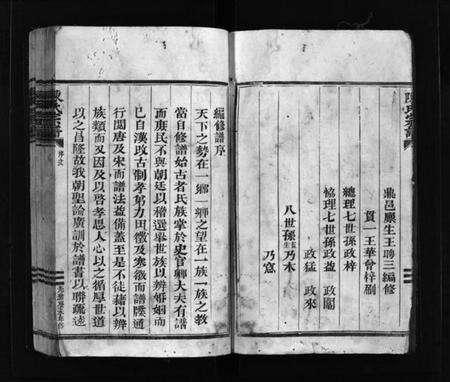 鼎邑廩生王聘三編修
貫一王華曾梓刷
總理七世孫政梓
協理七世孫政益 政閣
政猛 政來
八世孫生乃木
乃寬
編修譜序
天下之勢在一鄉一鄉之望在一族一族之教
當自修譜始古者氏族掌於史官卿大夫有譜
而庶民不與朝廷以稽選舉世族以辨婚姻而
已自漢改古制孝弟力田徵及寒微而譜牒通
行閱唐及宋而譜法益備蓋至是不徒藉以辨
族類而又因及以啓孝思人心以之循厚世道
以之昌隆故我朝聖諭廣訓於譜書以聯疏遠